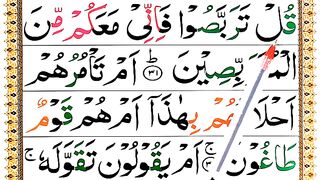 قُلْ تَرَبَّصُوْا فَاِنِّیْ مَعَكُمْ مِّنَ
الْمُتَرَبِّصِیْنَ ﴿۳۱﴾ ؕ اَمْ تَاْمُرُهُمْ
اَحْلَامُهُمْ بِهٰذَاۤ اَمْ هُمْ قَوْمٌ
طَاغُوْنَ ۚ اَمْ یَقُوْلُوْنَ تَقَوَّلَهٗ ۚ